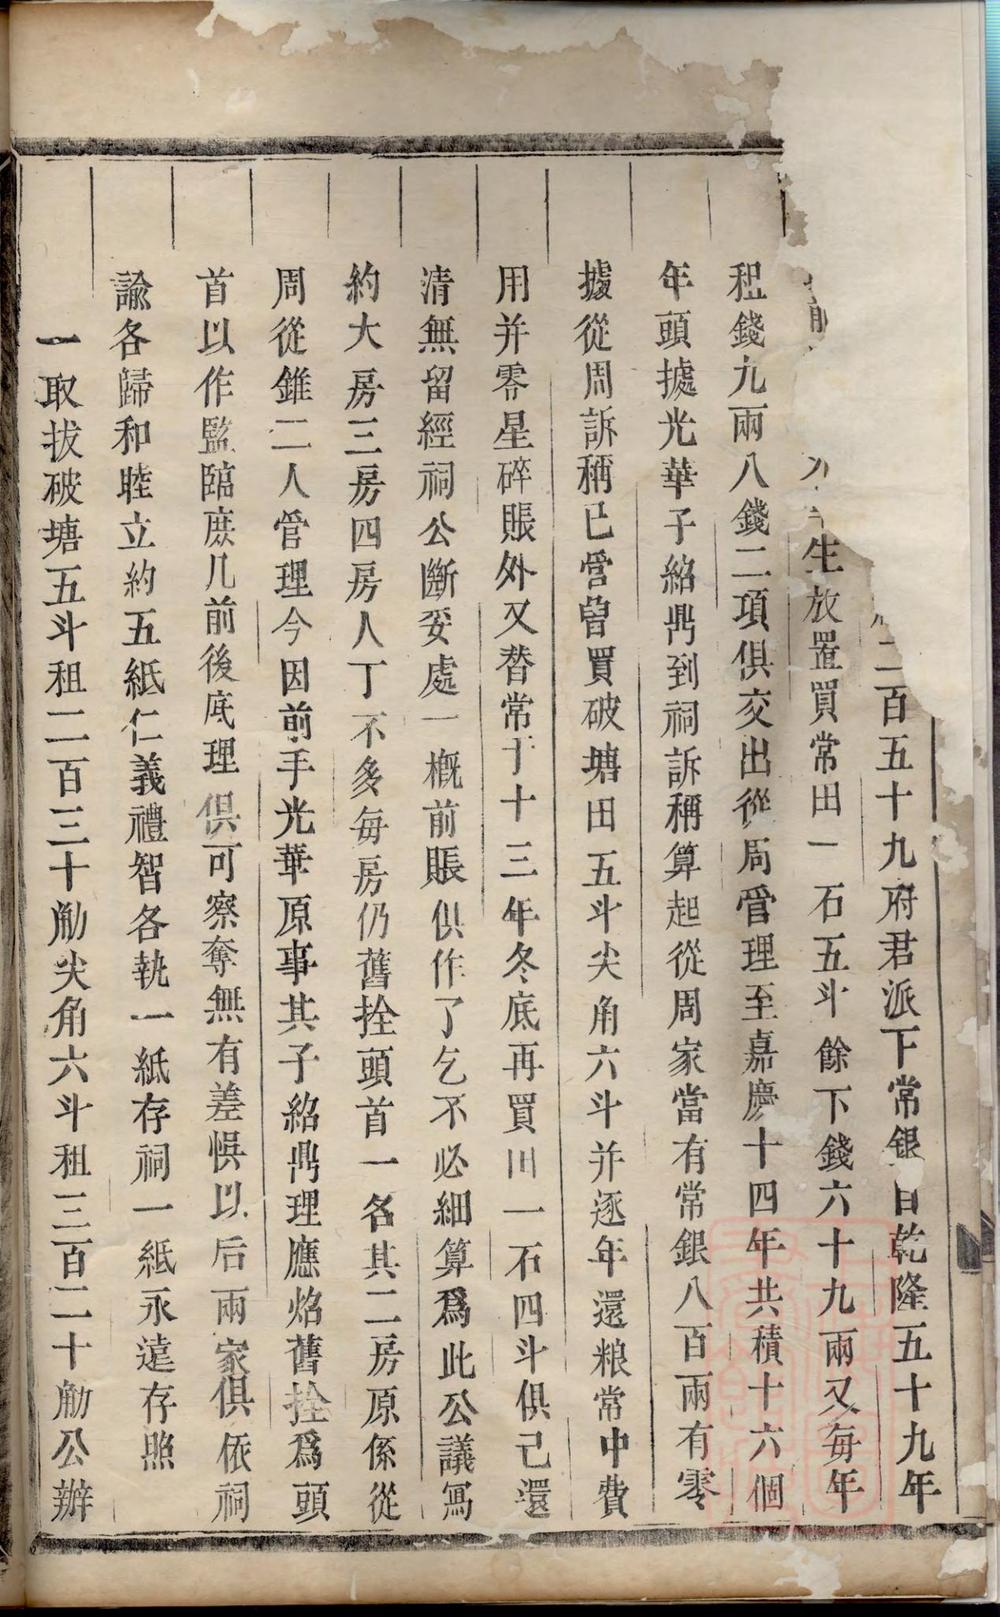 二百五十九府君派下常銀自乾隆五十九年
生放置買常田一石五斗餘下錢六十九兩又每年
租錢九兩八錢二項俱交出從周管理至嘉慶十四年共積十六個
年頭據光華子紹鼎到祠訴稱算起從周家當有常銀八百兩有零
據從周訴稱已管曽買破塘田五斗尖角六斗并逐年還粮常中費
用并零星碎賬外又替常于十三年冬底再買田一石四斗俱已還
清無留經祠公斷妥處一概前賬俱作了乞不必細算爲此公議寫
約大房三房四房人丁不多每房仍舊拴頭首一名其二房原係從
周從錐二人管理今因前手光華原事其子紹鼎理應炤舊拴爲頭
首以作監臨庶几前後底理俱可察奪無有差悮以后兩家俱依祠
諭各歸和睦立約五紙仁義禮智各執一紙存祠一紙永遠存照
一取拔破塘五斗租二百三十觔尖角六斗租三百二十觔公辦